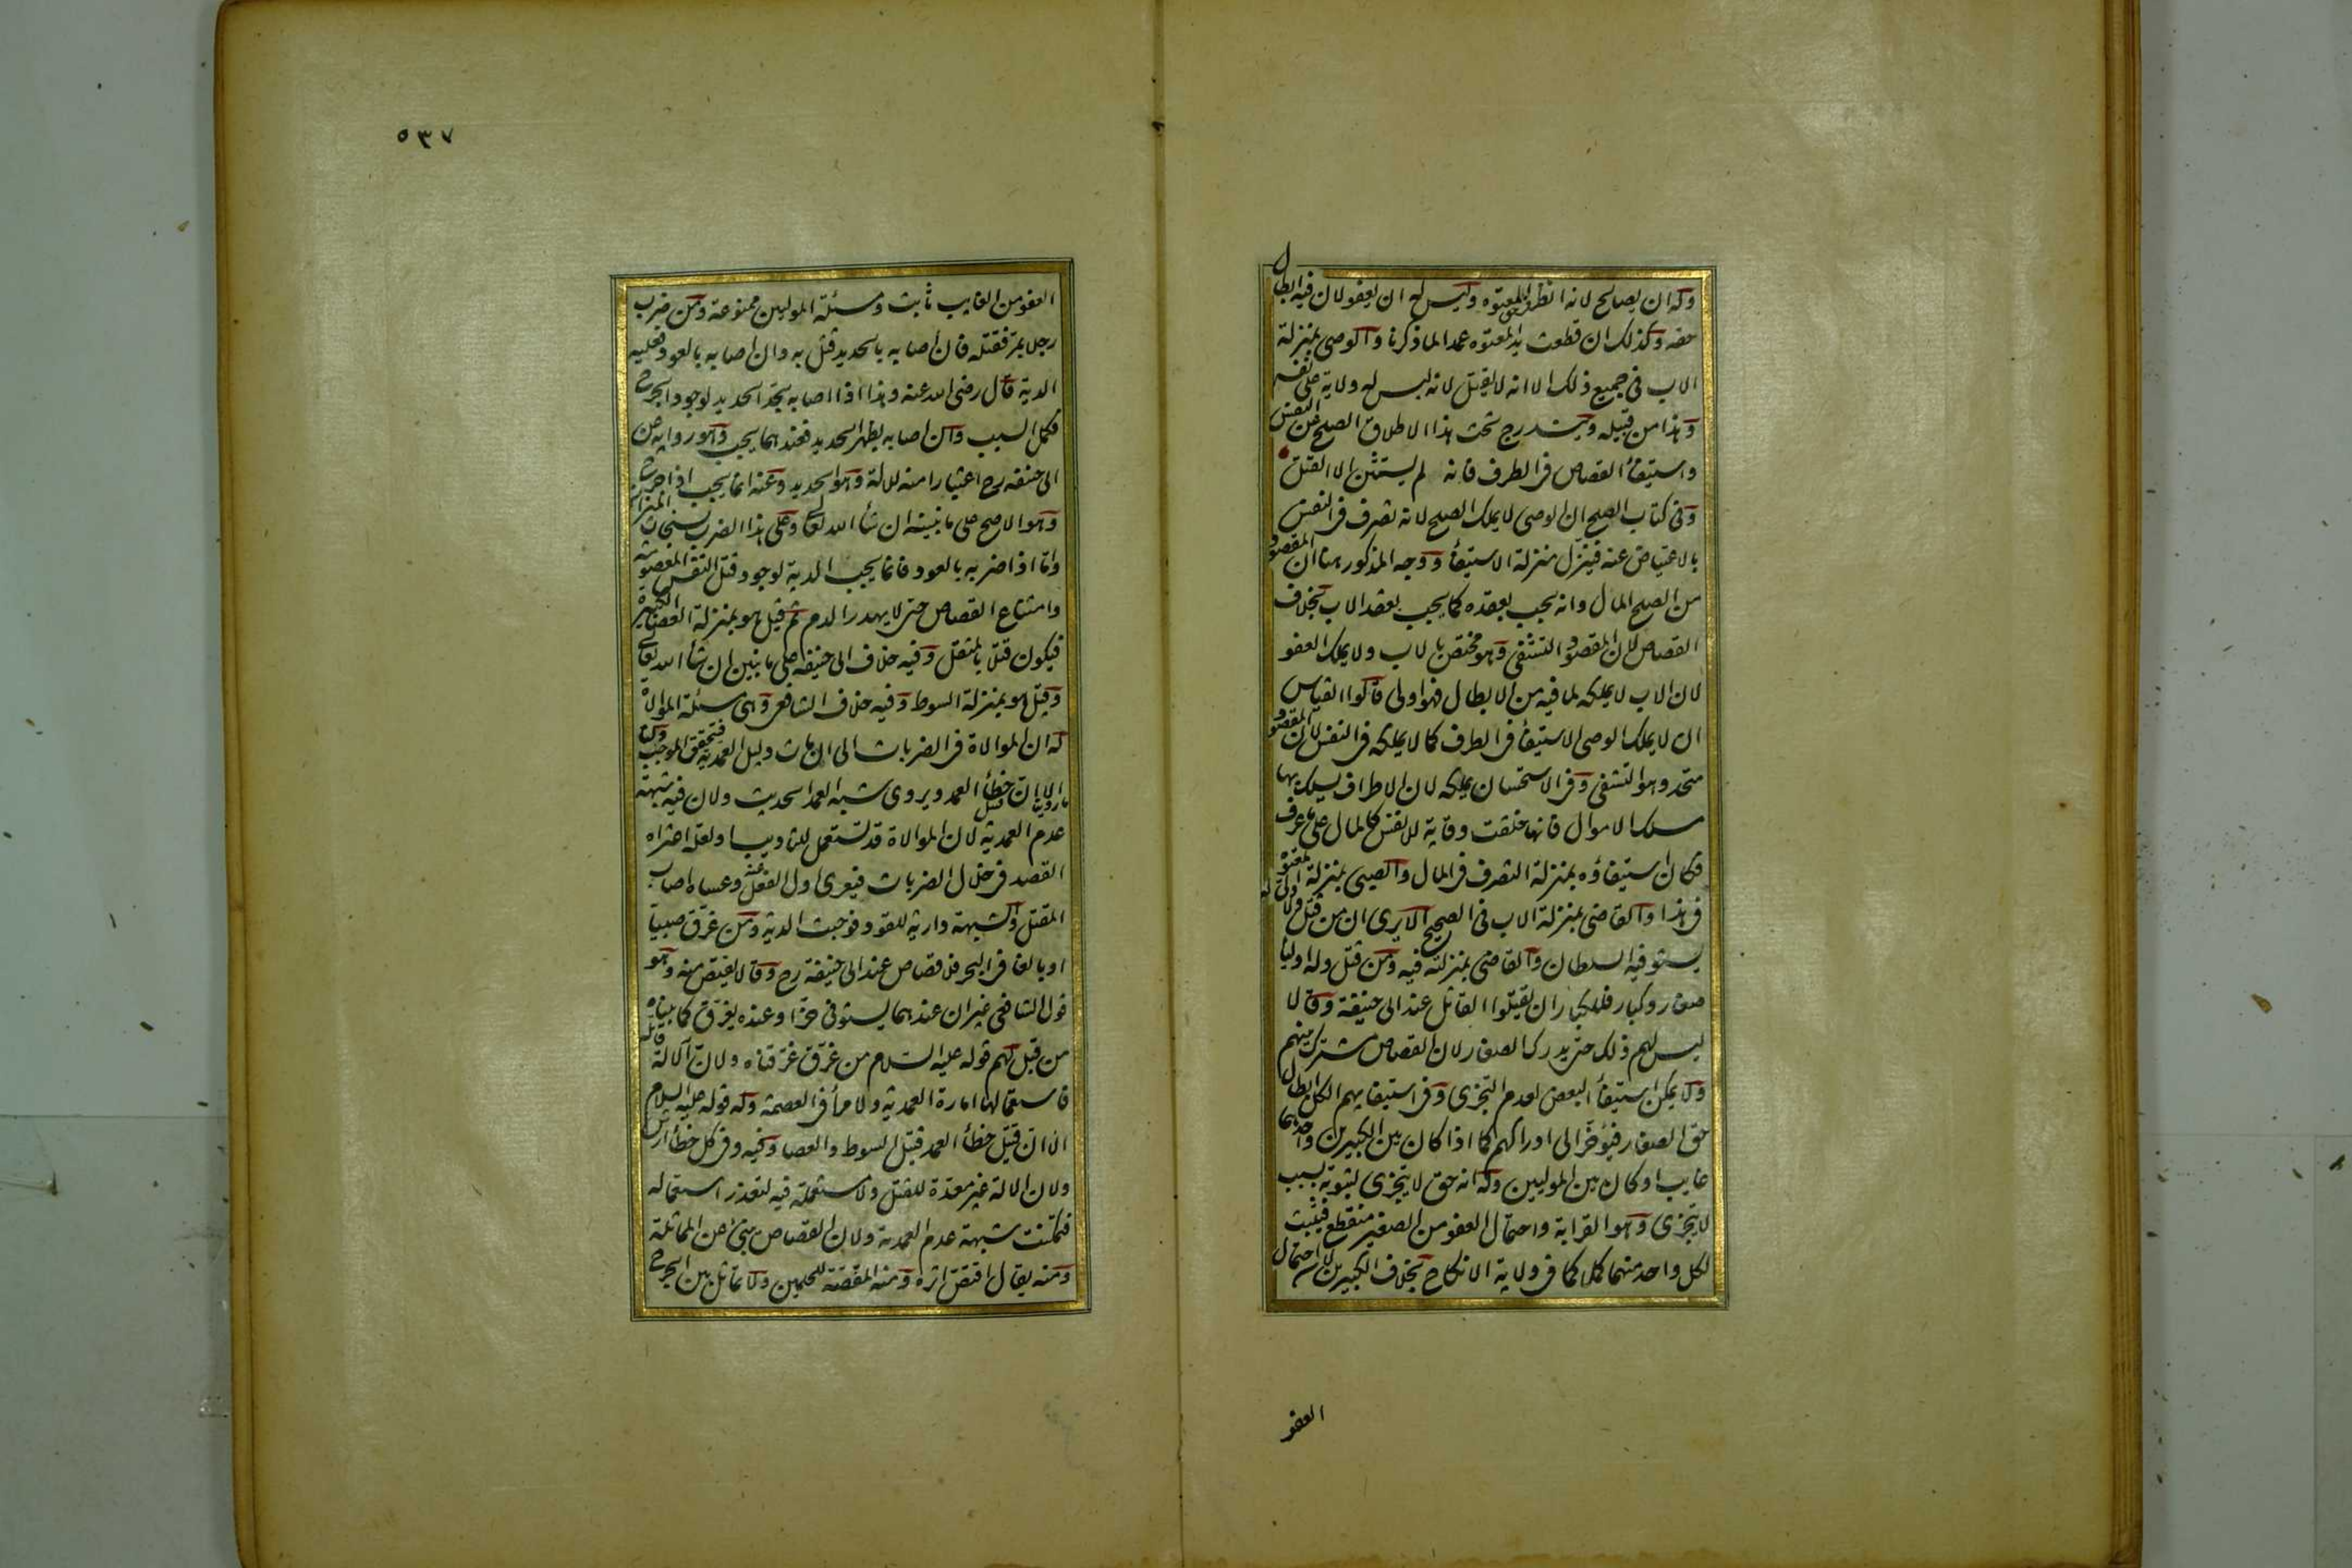 وله ان يصالح لانه انظر للمعتوه وليس له ان يعفو لان فيه ابطال
حقه وكذلك ان قطعت يد المعتوه عمدا لما ذكرنا والوصى بمنزلة
الاب فى جميع ذلك الا انه لا يقتل لانه ليس له ولاية على نفسه
وهذا من قبيله ويندرج تحت هذا الاطلاق الصلح عن النفس
واستيفأ القصاص فى الطرف فانه لم يستثن الا القتل
وفى كتاب الصلح ان الوصى لا يملك الصلح لانه تصرف فى النفس
بالاعتياض عنه فينزل منزلة الاستيفأ ووجه المذكور ههنا ان المقصود
من الصلح المال وانه يجب بعقده كما يجب بعقد الاب بخلاف
القصاص لان المقصود التشفى وهو مختص بالاب ولا يملك العفو
لان الاب لا يملكه لما فيه من الابطال فهو اولى قالوا القياس
ان لا يملك الوصى الاستيفأ فى الطرف كما لا يملكه فى النفس لان المقصود
متحد وهو التشفى وفى الاستحسان يملكه لان الاطراف يسلك بها
مسلك الاموال فانها خلقت وقاية للانفس كالمال على ما عرف
فكان استيفاؤه بمنزلة التصرف فى المال والصبى بمنزلة المعتوه
فى هذا والقاضى بمنزلة الاب فى الصحيح الا يرى ان من قتل ولا ولى له
يستوفيه السلطان والقاضى بمنزلته فيه ومن قتل وله اوليا
صغار وكبار فللكبار ان يقتلوا القاتل عند ابى حنيفة وقالا
ليس لهم ذلك حتى يدرك الصغار لان القصاص مشترك بينهم
ولا يمكن استيفأ البعض لعدم التجزى وفى استيفايهم الكل ابطال
حق الصغار فيؤخر الى ادراكهم كما اذا كان بين الكبيرين واحدهما
غايب او كان بين الموليين وله انه حق لا يتجزى لثبوته بسبب
لا يتجزى وهو القرابة واحتمال العفو من الصغير منقطع فيثبت
لكل واحد منهما كملا كما فى ولاية الانكاح بخلاف الكبيرين لان احتمال
العفو
٥٣٧
العفو من الغايب ثابت ومسئلة الموليين ممنوعة ومن ضرب
رجلا بمر فقتله فان اصابه بالحديد قتل به وان اصابه بالعود فعليه
الدية قال رضى الله عنه وهذا اذا اصابه بحد الحديد لوجود الجرح
فكمل السبب وان اصابه بظهر الحديد فعندهما يجب وهو رواية عن
ابى حنيفه رح اعتبارا منه للالة وهو الحديد وعنه انما يجب اذا جرح
وهو الاصح على ما نبينه ان شأ الله تعالى وعلى هذا الضرب بسنجات الميزان
واما اذا ضربه بالعود فانما يجب الدية لوجود قتل النفس المعصومة
وامتناع القصاص حتى لا يهدر الدم ثم قيل هو بمنزلة العصا الكبيرة
فيكون قتلا بالمثقل وفيه خلاف ابى حنيفه على ما نبين ان شأ الله تعالى
وقيل هو بمنزلة السوط وفيه خلاف الشافعى وهى مسئلة الموالاة
له ان الموالاة فى الضربات الى ان مات دليل العمدية فيتحقق الموجب ولنا
ما روينا الا ان قتيل خطأ العمد ويروى شبه العمد الحديث ولان فيه شبهة
عدم العمدية لان الموالاة قد تستعمل للتاديب او لعله اعتراه
القصد فى خلال الضربات فيعرى اول الفعل عنه وعساه اصاب
المقتل والشبهة دارية للقود فوجبت الدية ومن غرق صبيا
او بالغا فى البحر فلا قصاص عند ابى حنيفة رح وقالا يقتص منه وهو
قول الشافعى غير ان عندهما يستوفى حزا وعنده يغرق كما بيناه
من قبل لهم قوله عليه السلام من غرق غرقناه ولان الآلة قاتلة
فاستعمالها امارة العمدية ولا مرأ فى العصمة وله قوله عليه السلام
الا ان قتيل خطأ العمد قتيل السوط والعصا وفيه وفى كل خطأ ارش
ولان الالة غير معدة للقتل ولا مستعملة فيه لتعذر استعماله
فتمكنت شبهة عدم العمدية ولان القصاص ينبئ عن المماثلة
ومنه يقال اقتص اثره ومنه المقصة للجلمين ولا تماثل بين الجرح